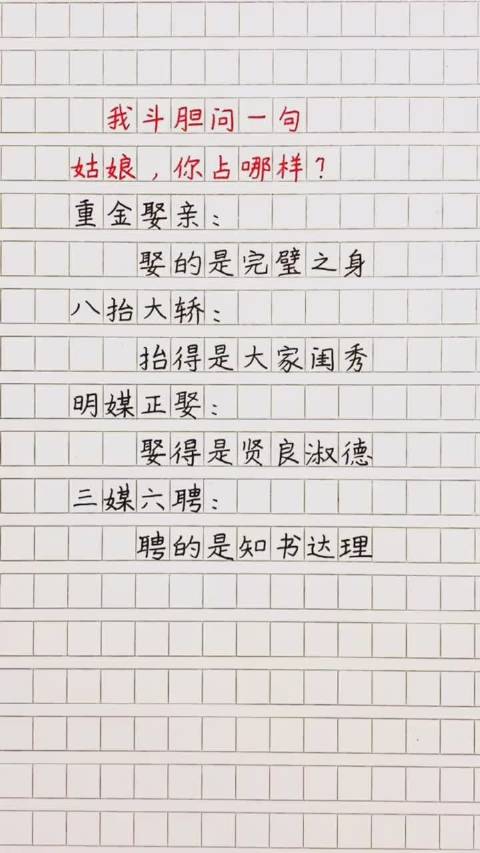 我斗胆问一句
姑娘，你占哪样？
重金娶亲：
娶的是完璧之身
八抬大轿：
抬得是大家闺秀
明媒正娶：
娶得是贤良淑德
三媒六聘：
聘的是知书达理